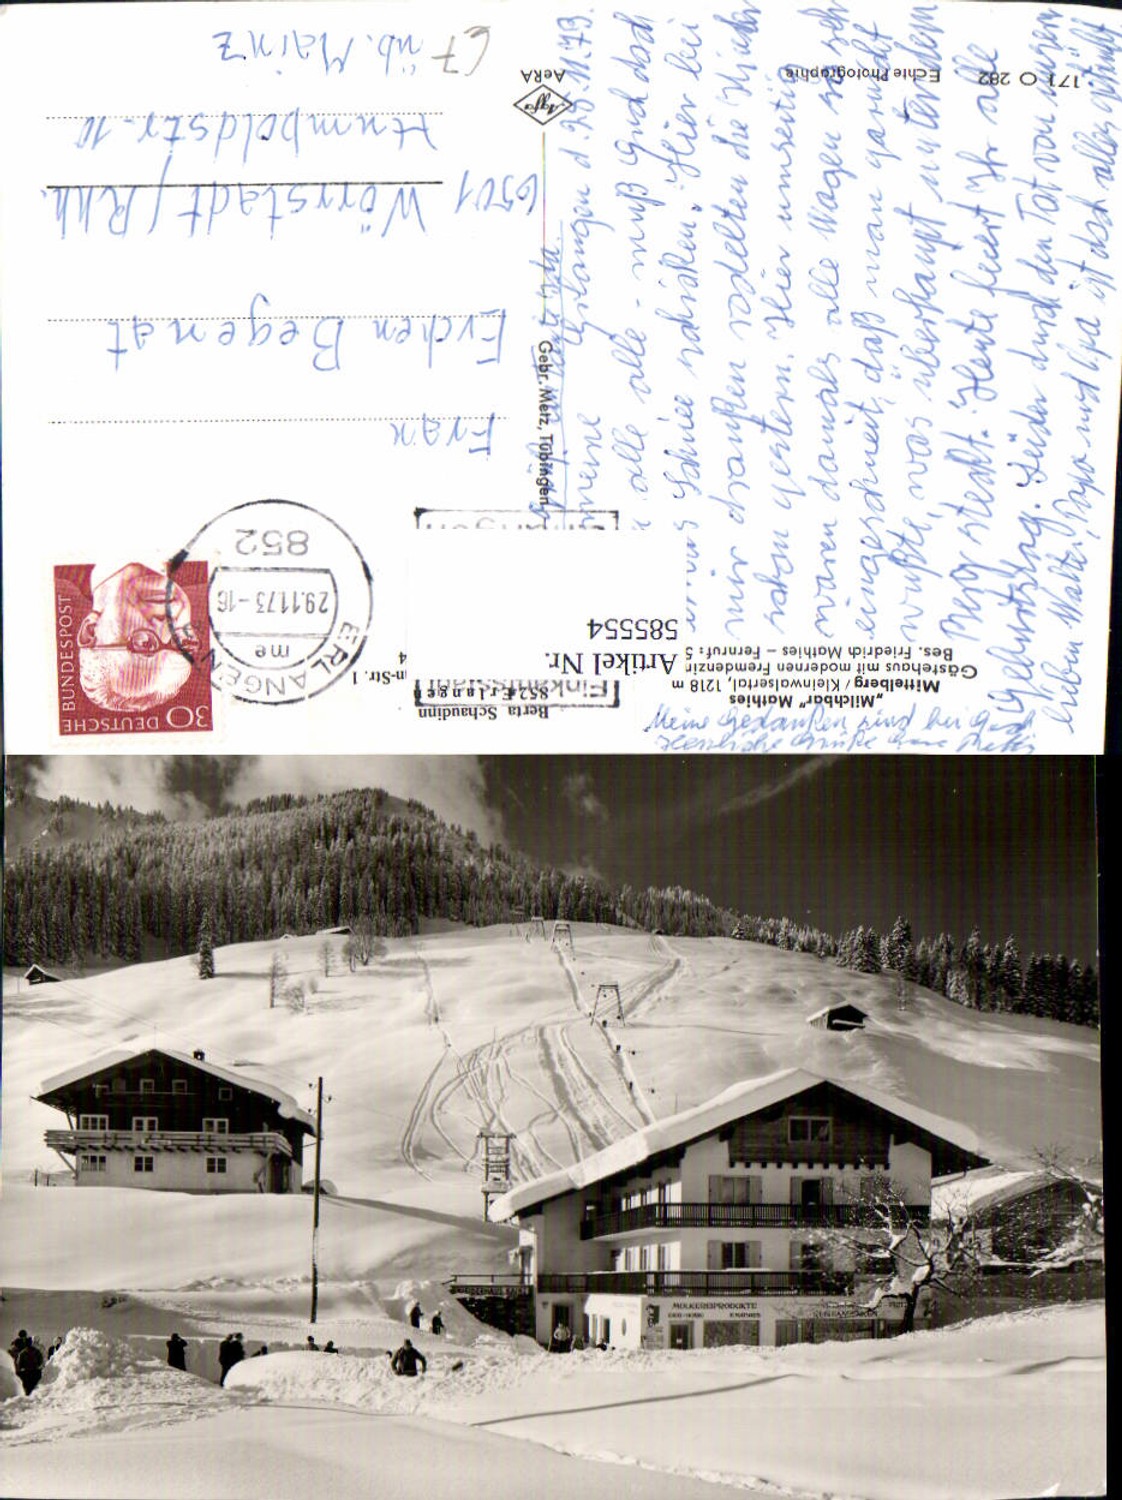 171 O 282
Echte Photographie
AeRA
Agfa
Gebr. Metz, Tübingen
„Milchbar“ Mathies
Mittelberg / Kleinwalsertal, 1218 m
Gästehaus mit modernen Fremdenzimmern
Bes. Friedrich Mathies – Fernruf: 5
Berta Schaudinn
852 Erlangen
Artikel Nr.
585554
DEUTSCHE
BUNDESPOST
30
ERLANGEN
29.11.73-16
me
852
Einkaufsstadt
Erlangen
Frau
Evchen Begenat
6501 Wörrstadt/Rhh.
Humboldstr. 10
üb. Mainz
Erlangen d. 29.11.73.
meine
alle alle - muß Euch doch
Schnee schicken. Hier bei
mir draußen rodelten die Kinder
schon gestern. Hier umseitig
waren damals alle Wagen so sehr
eingeschneit, daß man garnicht
wußte, was überhaupt unter dem
Berg steckt. Heute feiert Ihr alle
Geburtstag. Leider durch den Tot von unserm
lieben Walter, Papa und Opa ist doch alles getrübt.
Meine Gedanken sind bei Euch
Herzliche Grüße Eure
MOLKEREIPRODUKTE